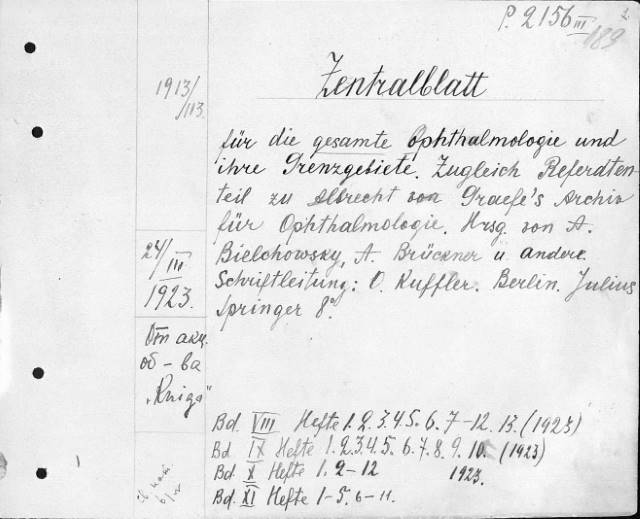 P. 2156 III
189
1913/113.
Zentralblatt
für die gesamte Ophthalmologie und
ihre Grenzgebiete. Zugleich Referdten-
teil zu Albrecht von Graefe's Archiv
für Ophthalmologie. Hrsg. von A.
Bielchowsky, A. Brückner u andere.
Schriftleitung: O. Kuffler. Berlin. Julius
Springer 8°.
24/III
1923.
От акц.
об-ва
„Kniga"
Bd. VIII Hefte 1. 2. 3. 4. 5. 6. 7-12. 13. (1923)
Bd IX Hefte 1. 2. 3. 4. 5. 6. 7. 8. 9. 10. (1923)
Bd. X Hefte 1. 2-12 1923.
Bd. XI Hefte 1-5. 6-11.